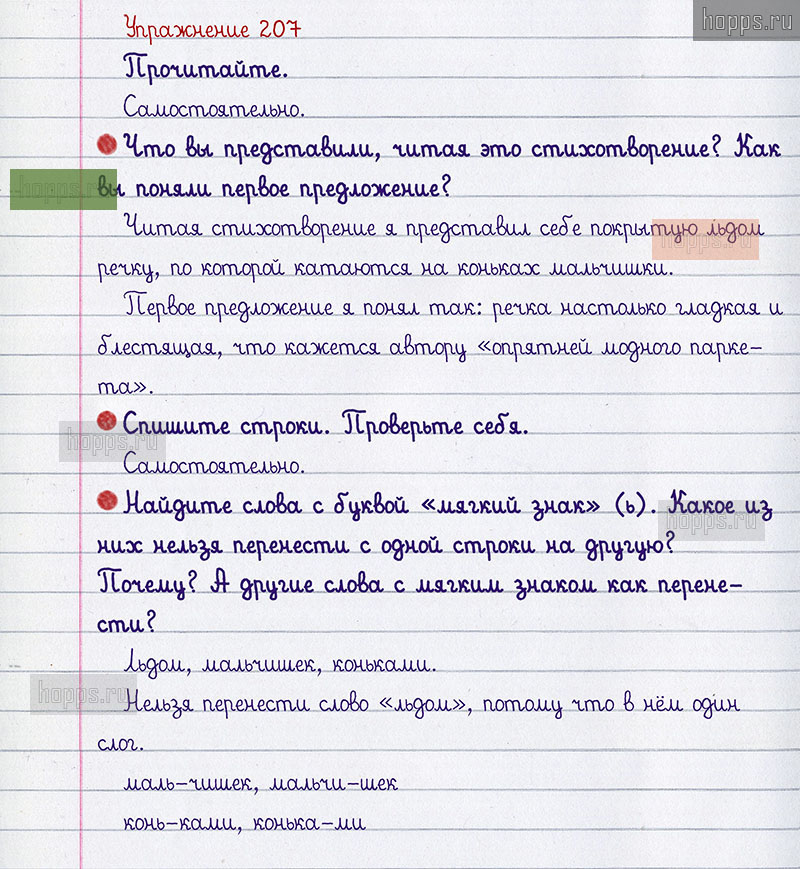 hopps.ru
Упражнение 207
Прочитайте.
Самостоятельно.
Что вы представили, читая это стихотворение? Как
hopps.ru
вы поняли первое предложение?
Читая стихотворение я представил себе покрытую льдом
hopps.ru
речку, по которой катаются на коньках мальчишки.
Первое предложение я понял так: речка настолько гладкая и
блестящая, что кажется автору «опрятней модного парке-
та».
Спишите строки. Проверьте себя.
hopps.ru
Самостоятельно.
Найдите слова с буквой «мягкий знак» (ь). Какое из
hopps.ru
них нельзя перенести с одной строки на другую?
Почему? А другие слова с мягким знаком как перене-
сти?
Льдом, мальчишек, коньками.
hopps.ru
Нельзя перенести слово «льдом», потому что в нём один
слог.
маль-чишек, мальчи-шек
конь-ками, конька-ми